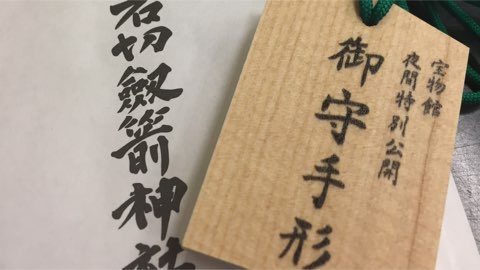 宝物館
夜間特別公開
御守手形
石切劔箭神社